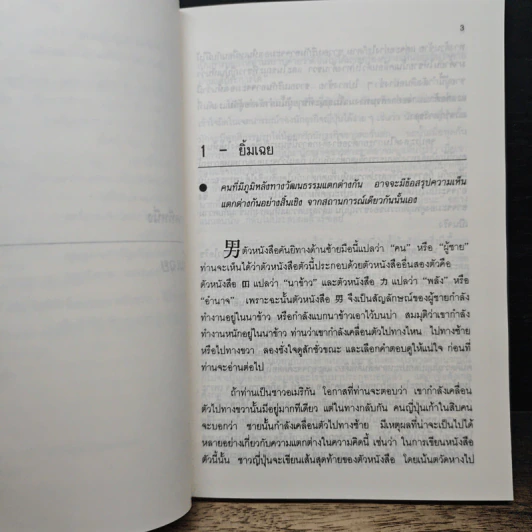 3
1 - ยิ้มเฉย
● คนที่มีภูมิหลังทางวัฒนธรรมแตกต่างกัน อาจจะมีข้อสรุปความเห็น
แตกต่างกันอย่างสิ้นเชิง จากสถานการณ์เดียวกันนั้นเอง
男 ตัวหนังสือคันยิทางด้านซ้ายมือนี้แปลว่า “คน” หรือ “ผู้ชาย”
ท่านจะเห็นได้ว่าตัวหนังสือตัวนี้ประกอบด้วยตัวหนังสืออื่นสองตัวคือ
ตัวหนังสือ 田 แปลว่า “นาข้าว” และตัวหนังสือ 力 แปลว่า “พลัง” หรือ
“อำนาจ” เพราะฉะนั้นตัวหนังสือ 男 จึงเป็นสัญลักษณ์ของผู้ชายกำลัง
ทำงานอยู่ในนาข้าว หรือกำลังแบกนาข้าวเอาไว้บนบ่า สมมุติว่าเขากำลัง
ทำงานหนักอยู่ในนาข้าว ท่านว่าเขากำลังเคลื่อนตัวไปทางไหน ไปทางซ้าย
หรือไปทางขวา ลองชั่งใจดูสักชั่วขณะ และเลือกคำตอบดูให้แน่ใจ ก่อนที่
ท่านจะอ่านต่อไป
ถ้าท่านเป็นชาวอเมริกัน โอกาสที่ท่านจะตอบว่า เขากำลังเคลื่อน
ตัวไปทางขวานั้นมีอยู่มากทีเดียว แต่ในทางกลับกัน คนญี่ปุ่นเก้าในสิบคน
จะบอกว่า ชายนั้นกำลังเคลื่อนตัวไปทางซ้าย มีเหตุผลที่น่าจะเป็นไปได้
หลายอย่างเกี่ยวกับความแตกต่างในความคิดนี้ เช่นว่า ในการเขียนหนังสือ
ตัวนี้นั้น ชาวญี่ปุ่นจะเขียนเส้นสุดท้ายของตัวหนังสือ โดยเน้นตวัดหางไป